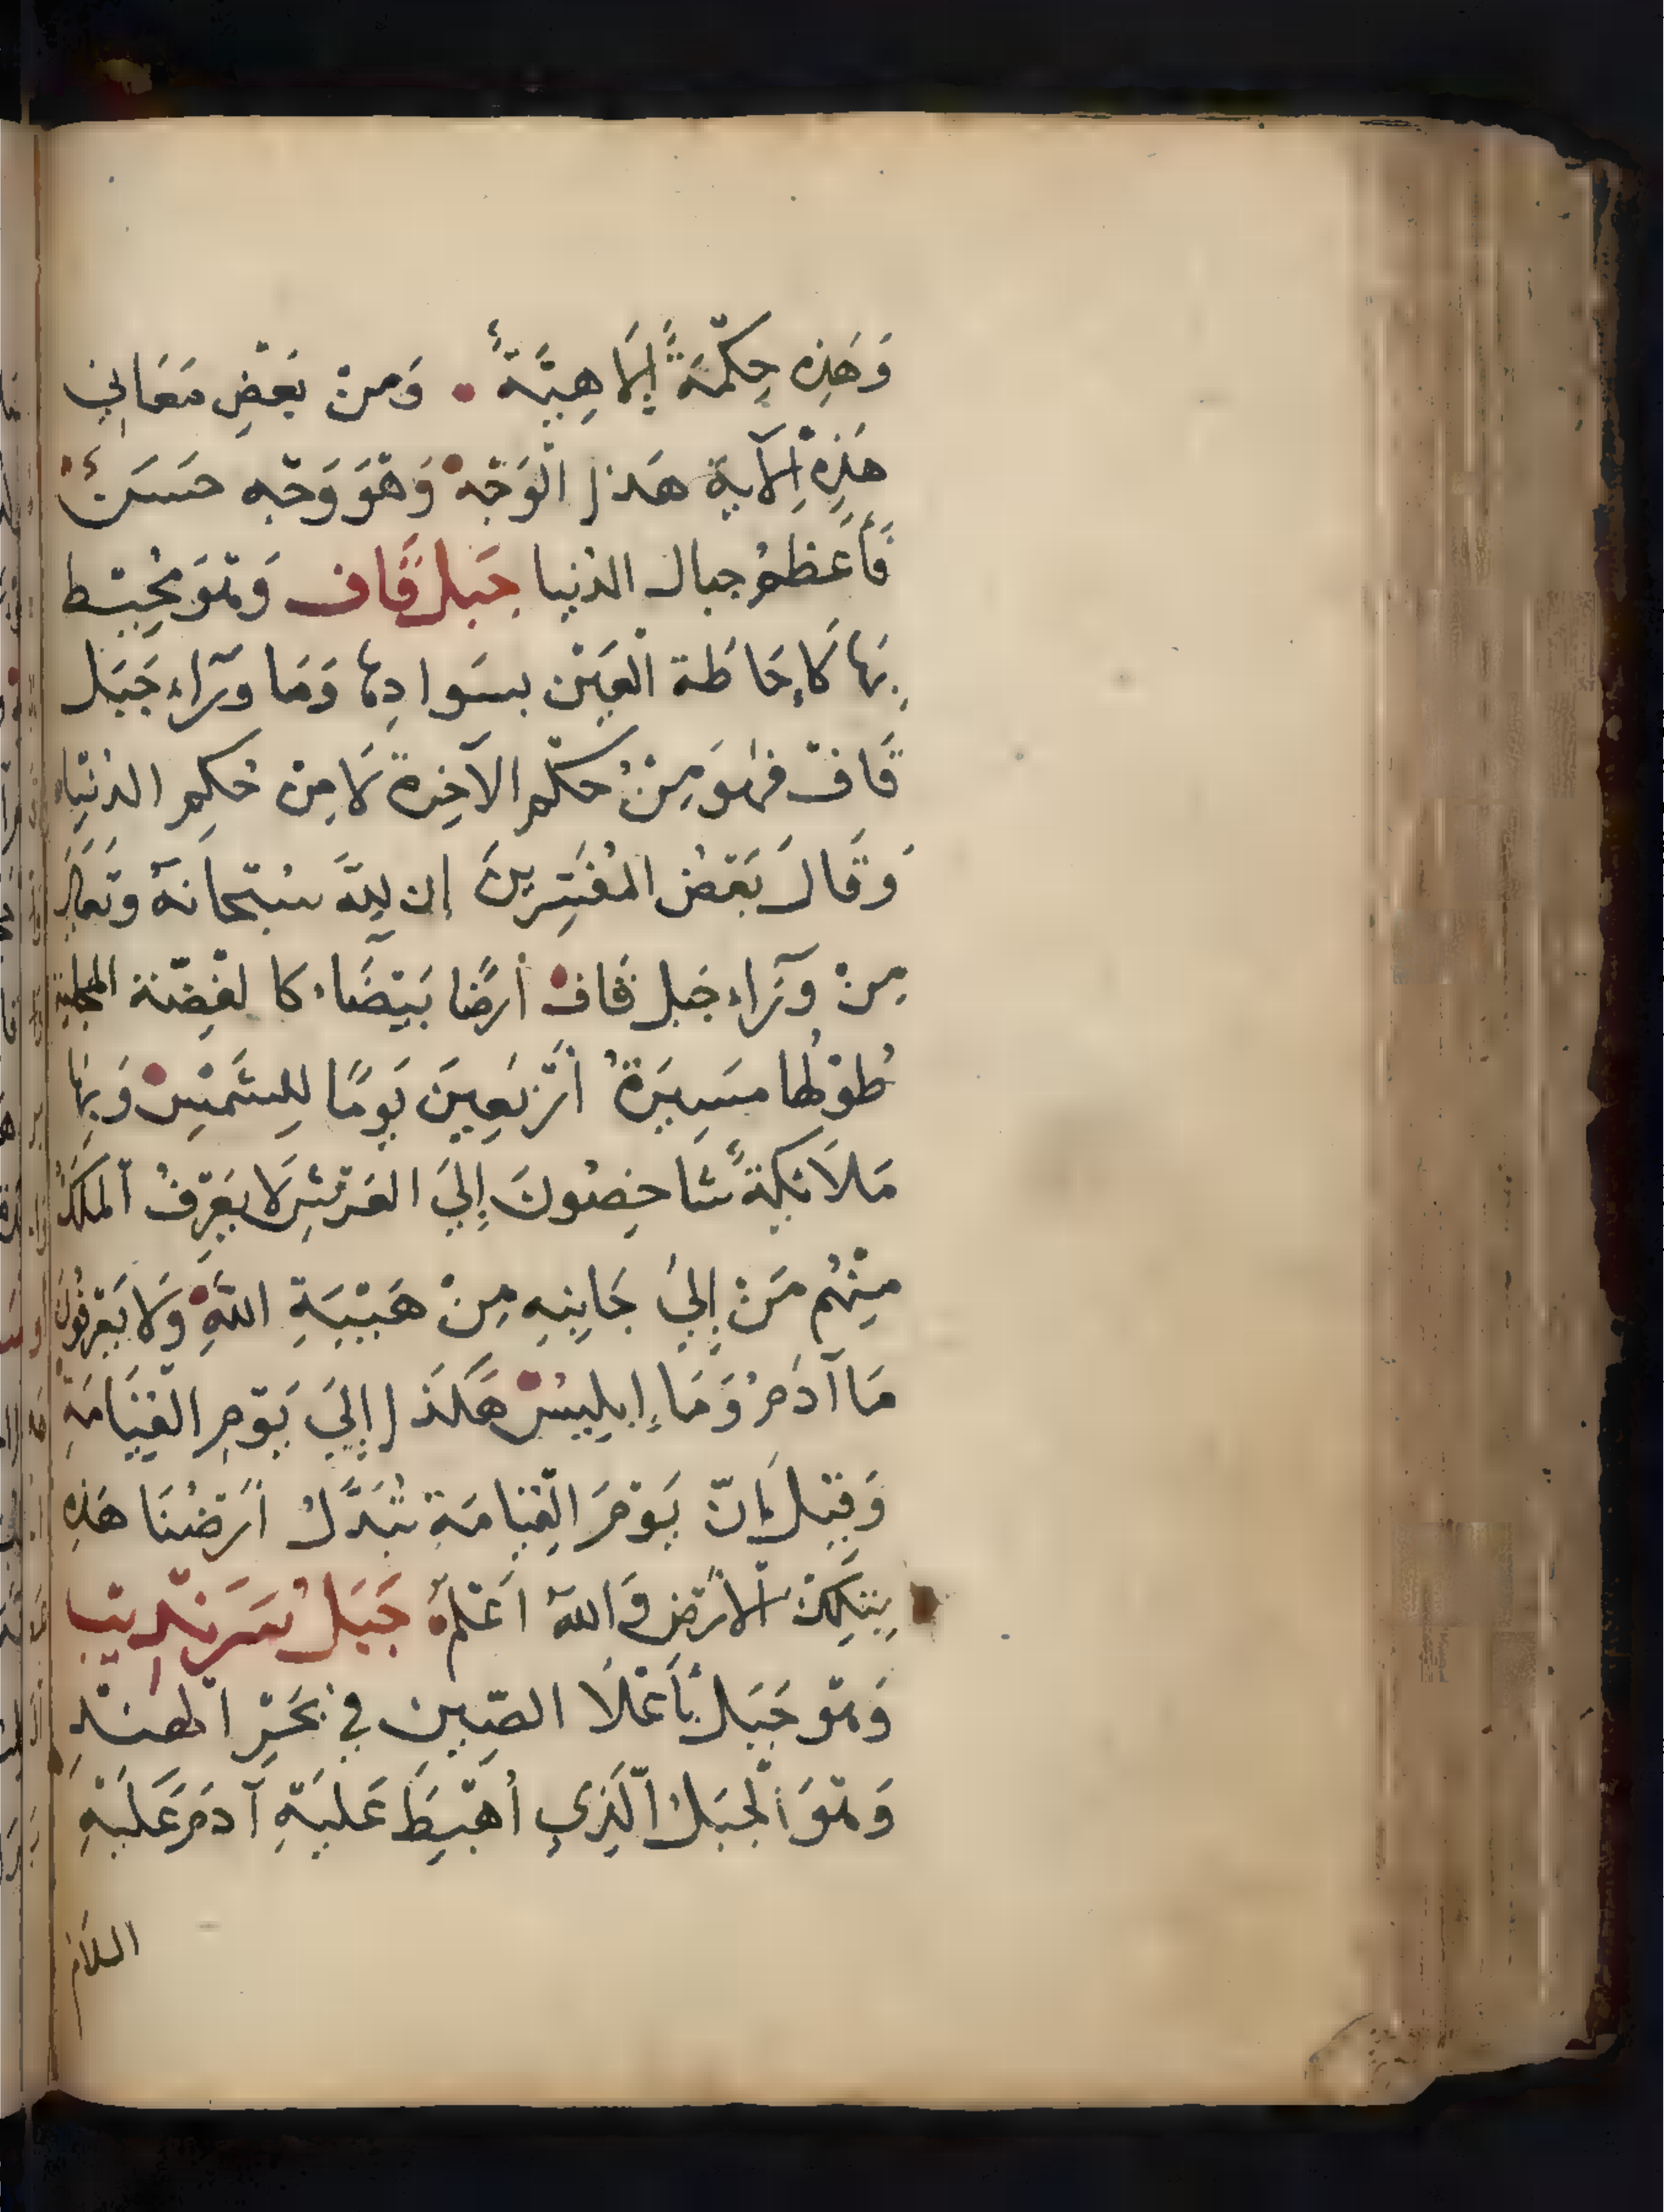 وَهَذِه حِكْمَةٌ إِلَاهِيَّةٌ . وَمِنْ بَعْضِ مَعَانِي
هَذِهِ الْآيَةِ هَذَا الْوَجْهُ وَهْوَ وَجْه حَسَنٌ
فَأَعْظَمُ جبال الدُنيا جَبَل قَاف وَهْوَ مُحِيْط
بِهَا كَإِحَاطَة الْعَيْن بسَوادِهَا وَمَا وَرَآءِ جَبَل
قَاف فهْوَ مِنْ حُكْمِ الآخِرة لَا مِنْ حُكمِ الدُنْيَا
وَقَالَ بَعْضُ المُفَسِّرِينَ إن لِلَّهِ سُبْحَانَهُ وَتَعَالَى
مِنْ وَرَآءِ جَبل قَافْ أرضًا بَيْضَاء كا لفِضّة المجلية
طُوْلُها مَسِيرَةُ أَرْبَعِينَ يَومًا لِلشَمْسِ وَبِهَا
مَلَائِكَةٌ شَاخِصُونَ إِلَيَ العَرْشِ لَا يَعْرِفُ الْمَلَكُ
مِنْهُم مَنْ إِلَيَ جَانِبِهِ مِنْ هَيْبَةِ اللّهِ وَلَا يَعْرِفُونَ
مَا آدَمُ وَمَا إِبلِيسُ هَكَذَا إِلَيَ يَوْمِ القِيَامَةِ
وَقِيْلَ إِنّ يَوْمَ الْقِيَامَة تُبَدَّلُ أَرْضُنَا هَذِهِ
بِتِلكَ الْأَرْضِ وَاللّهُ أَعْلَمُ جَبَل سَرَنْدِيْب
وَهْو جَبَل بأَعْلَا الصِّينِ في بَحْرِ الهِنْدِ
وَهْوَ الْجَبَلُ الَّذِي أُهْبِطَ عَلَيْهِ آدَمَ عَلَيْهِ
السلام